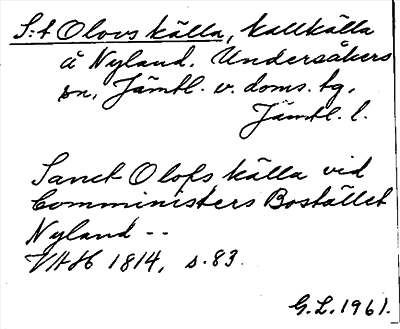 S:t Olovs källa, kallkälla
å Nyland. Undersåkers
sn, Jämtl. v. doms. tg,
Jämtl. l.
Sanct Olofs källa vid
Comministers Bostället
Nyland --
VAH 1814, s. 83.
G.L. 1961.